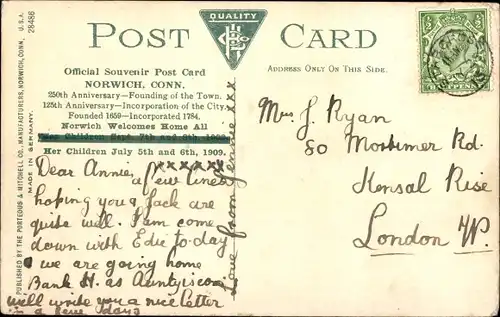 POST CARD
QUALITY
ADDRESS ONLY ON THIS SIDE.
Official Souvenir Post Card
NORWICH, CONN.
250th Anniversary—Founding of the Town.
125th Anniversary—Incorporation of the City.
Founded 1659—Incorporated 1784.
Norwich Welcomes Home All
Her Children July 5th and 6th, 1909.
PUBLISHED BY THE PORTEOUS & MITCHELL CO. MANUFACTURERS, NORWICH, CONN., U.S.A.
MADE IN GERMANY.
28486
Dear Annie, xxxxxx
a few lines
hoping you & Jack are
quite well. I am come
down with Edie to-day
we are going home
Bank H. as Aunty is
will write you a nice letter
in a few days
love from Jennie xxx
Mrs J. Ryan
80 Mortimer Rd.
Kensal Rise
London